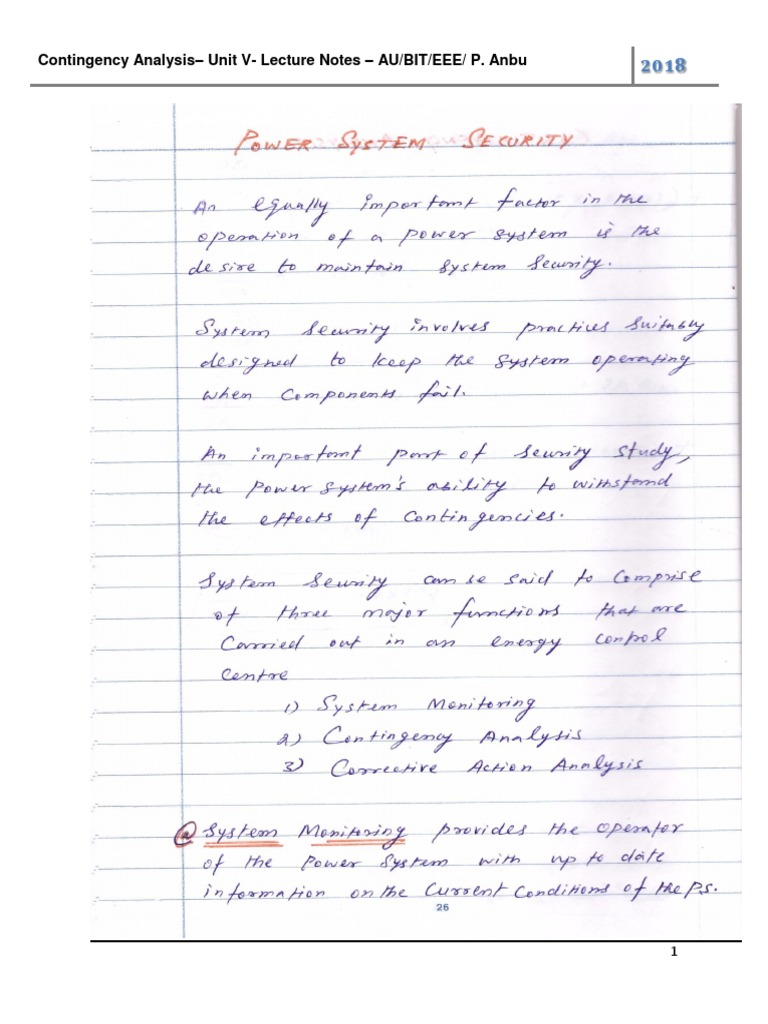 Contingency Analysis– Unit V- Lecture Notes – AU/BIT/EEE/ P. Anbu
2018
POWER SYSTEM SECURITY
An equally important factor in the
operation of a power system is the
desire to maintain system security.
System security involves practices suitably
designed to keep the system operating
when components fail.
An important part of security study,
the power system's ability to withstand
the effects of contingencies.
System security can be said to comprise
of three major functions that are
carried out in an energy control
centre
1) System Monitoring
2) Contingency Analysis
3) Corrective Action Analysis
a System Monitoring provides the operator
of the power system with up to date
information on the current conditions of the P.S.
26
1